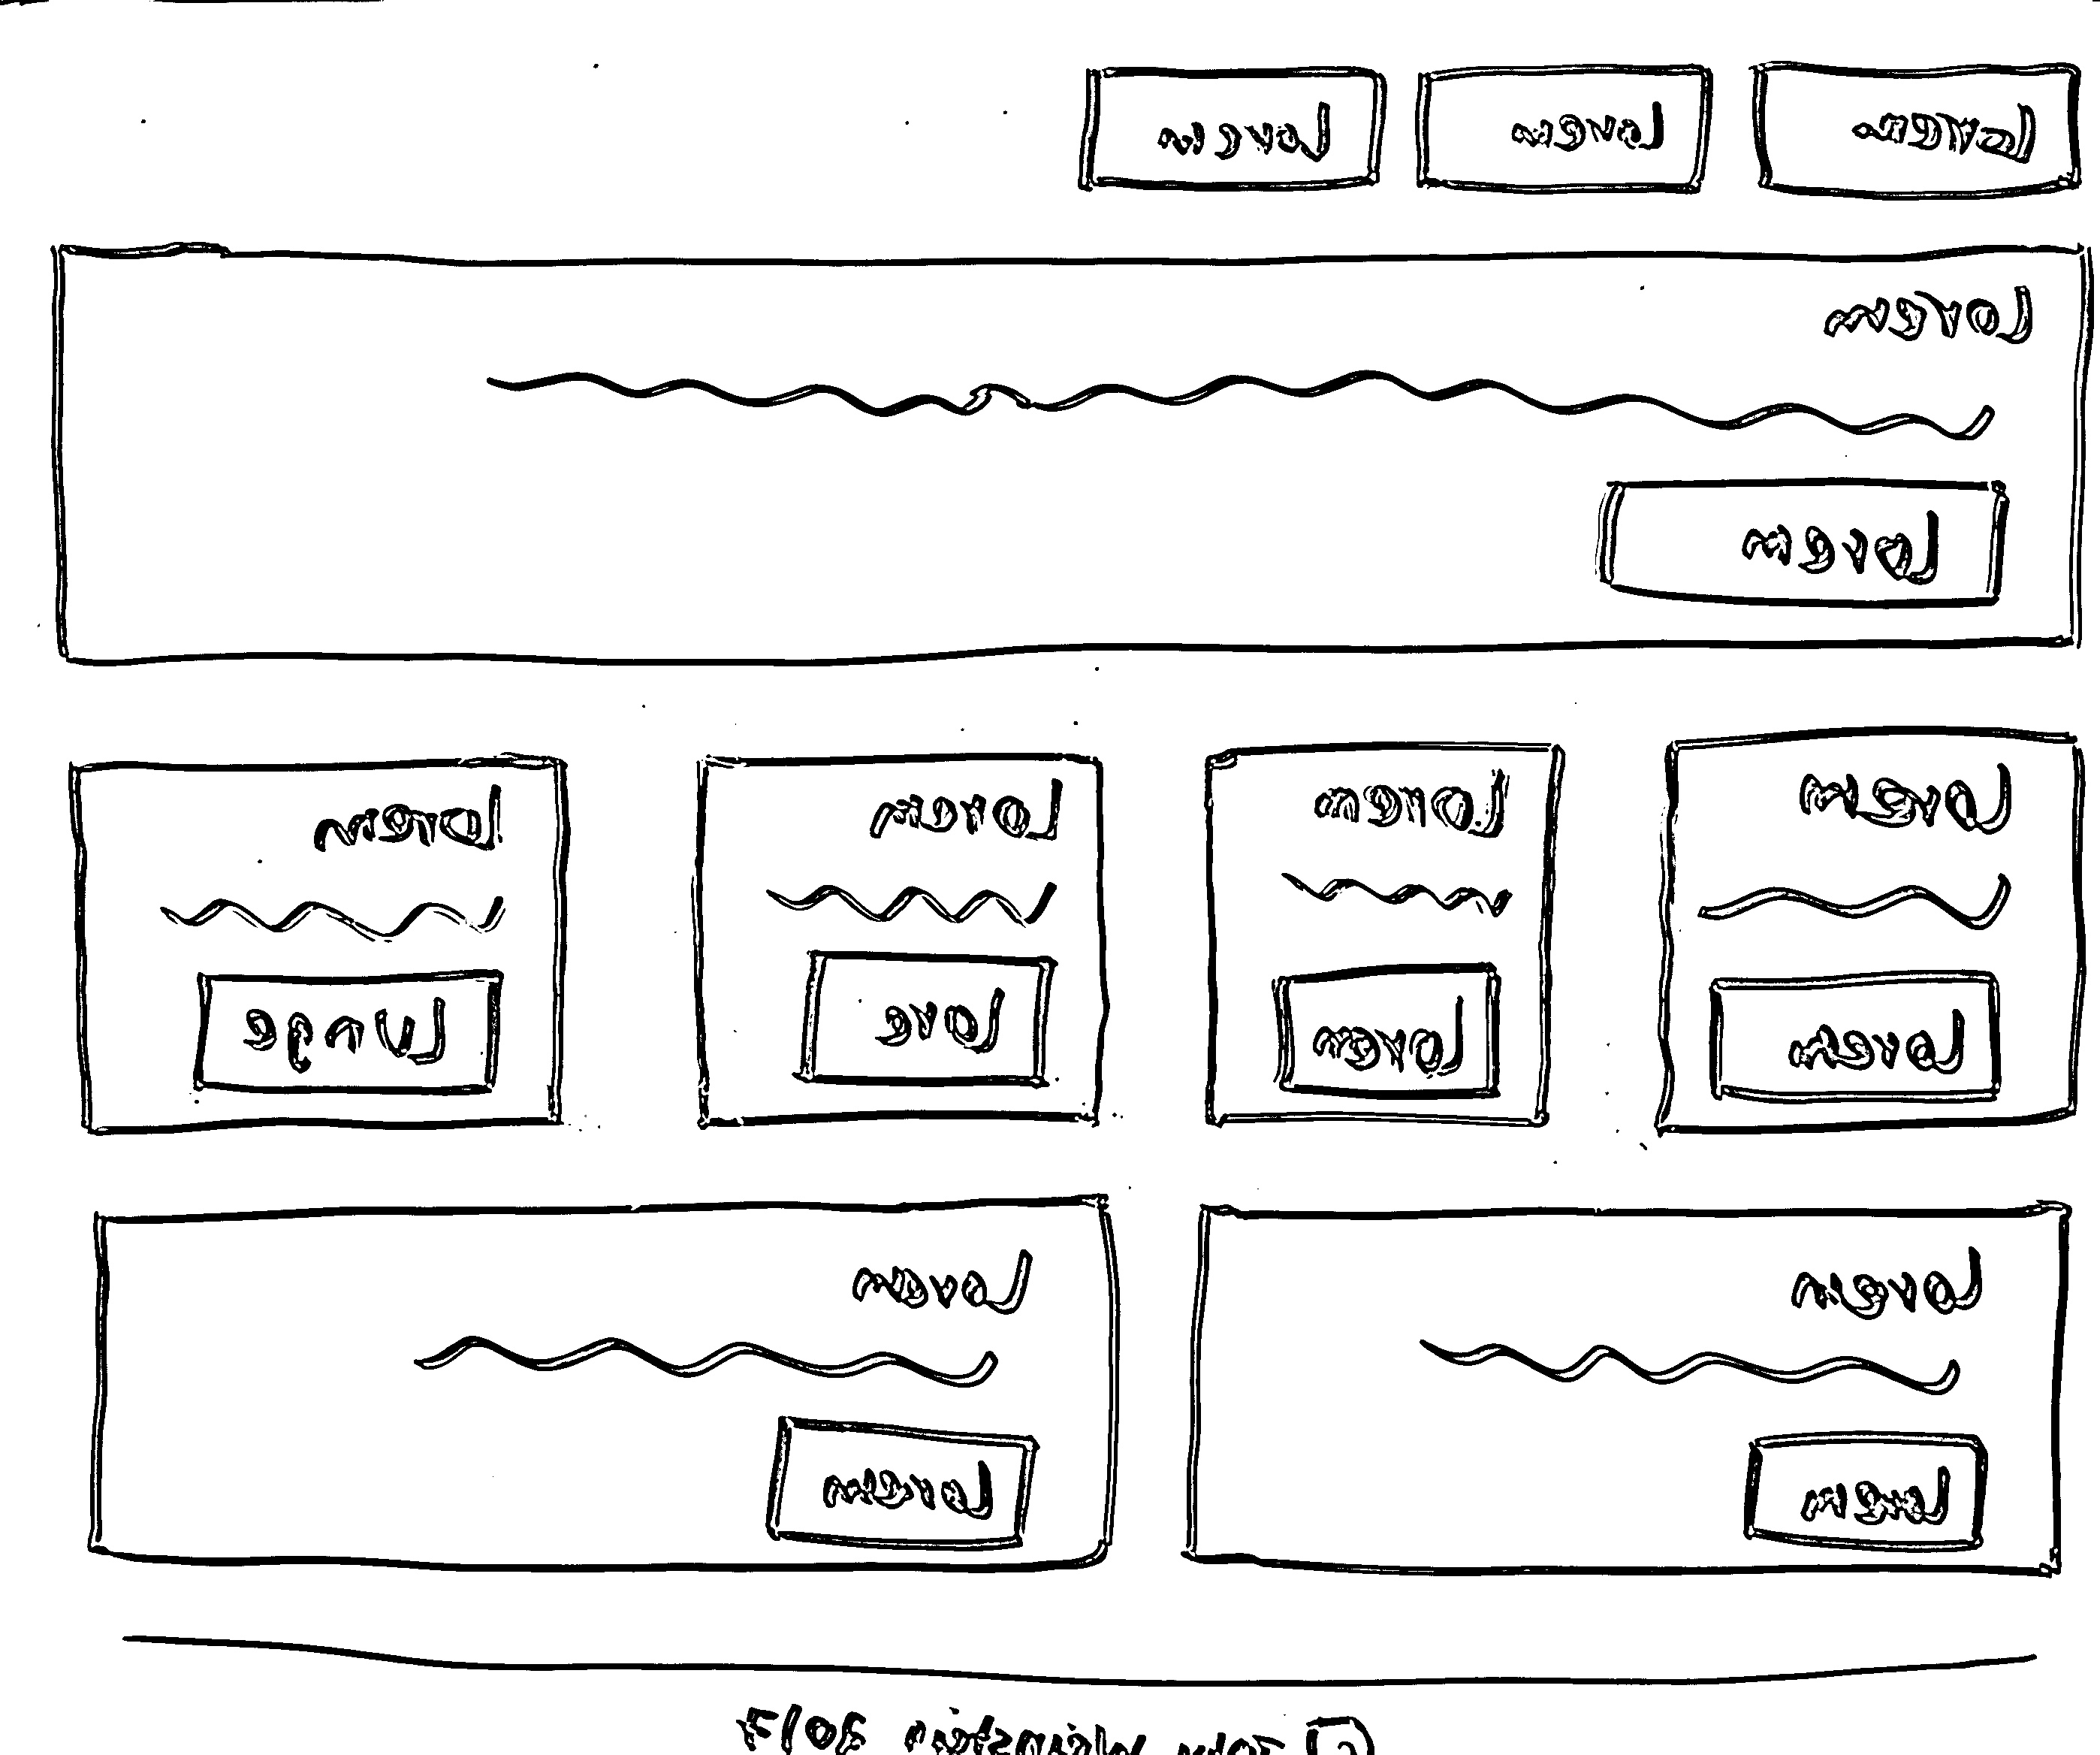 Lorem Lorem Lorem
Lorem
Lorem
Lorem Lorem Lorem Lorem
Lorem Lorem Lore Lunge
Lorem Lorem
Lorem Lorem